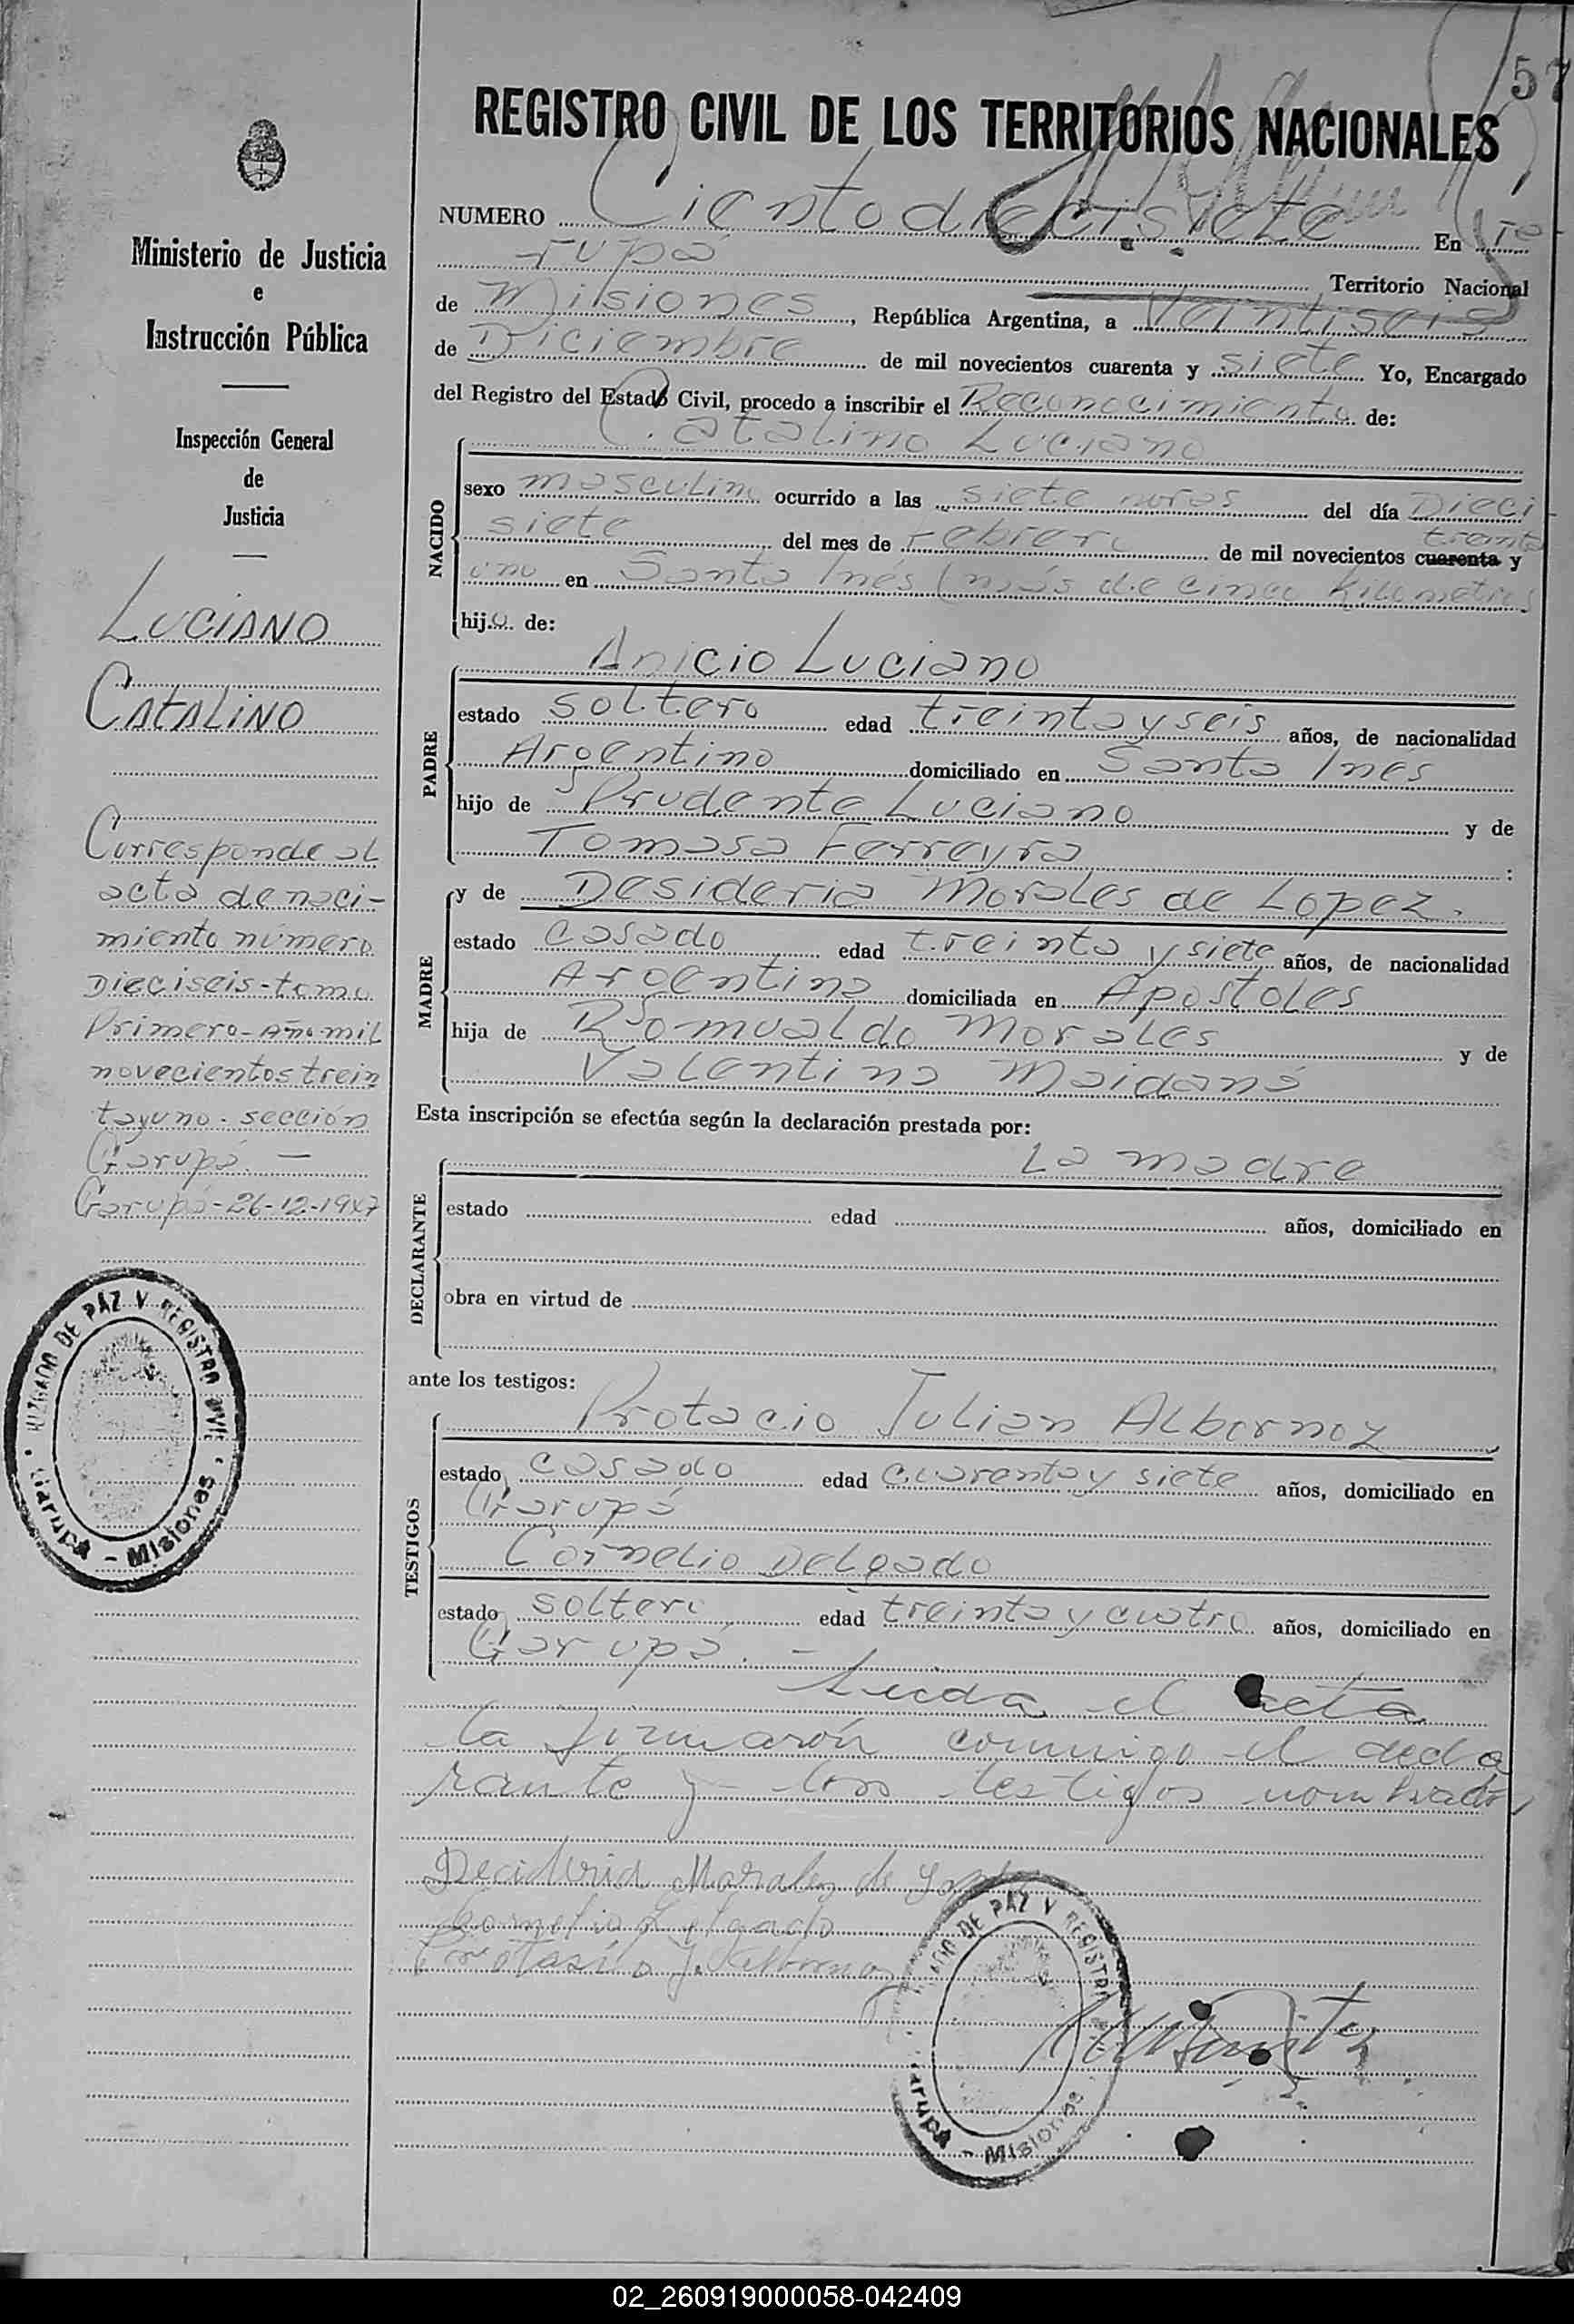 57
REGISTRO CIVIL DE LOS TERRITORIOS NACIONALES
NUMERO Ciento diecisiete En Ga-
rupá Territorio Nacional
de Misiones, República Argentina, a Veintiseis
de Diciembre de mil novecientos cuarenta y siete Yo, Encargado
del Registro del Estado Civil, procedo a inscribir el Reconocimiento de:
Catalino Luciano
NACIDO
sexo masculino ocurrido a las siete horas del día Dieci-
siete del mes de Febrero de mil novecientos cuarenta y
treinta
uno en Santa Inés (más de cinco Kilometros)
hijo de:
Anicio Luciano
PADRE
estado soltero edad treinta y seis años, de nacionalidad
Argentino domiciliado en Santa Inés
hijo de Prudente Luciano y de
Tomasa Ferreyra :
MADRE
y de Desideria Morales de Lopez.
estado casada edad treinta y siete años, de nacionalidad
Argentina domiciliada en Apostoles
hija de Romualdo Morales y de
Valentina Maidana
Esta inscripción se efectúa según la declaración prestada por:
La madre
DECLARANTE
estado edad años, domiciliado en
obra en virtud de
ante los testigos:
Protacio Julian Albornoz
TESTIGOS
estado casado edad cuarenta y siete años, domiciliado en
Garupá
Cornelio Delgado
estado soltero edad treinta y cuatro años, domiciliado en
Garupá. -
Leida el acta
la firmarón conmigo el decla
rante y los testigos nombrados
Decideria Morales de
Cornelio Delgado
Protasio J. Albornoz
JUZGADO DE PAZ Y REGISTRO CIVIL
Garupá - Misiones
Ministerio de Justicia
e
Instrucción Pública
Inspección General
de
Justicia
LUCIANO
CATALINO
Corresponde al
acta de naci-
miento número
Dieciseis-tomo
Primero-Año mil
novecientos trein
ta y uno - sección
Garupá. -
Garupá-26-12-1947
JUZGADO DE PAZ Y REGISTRO CIVIL
Garupá - Misiones
02_260919000058-042409